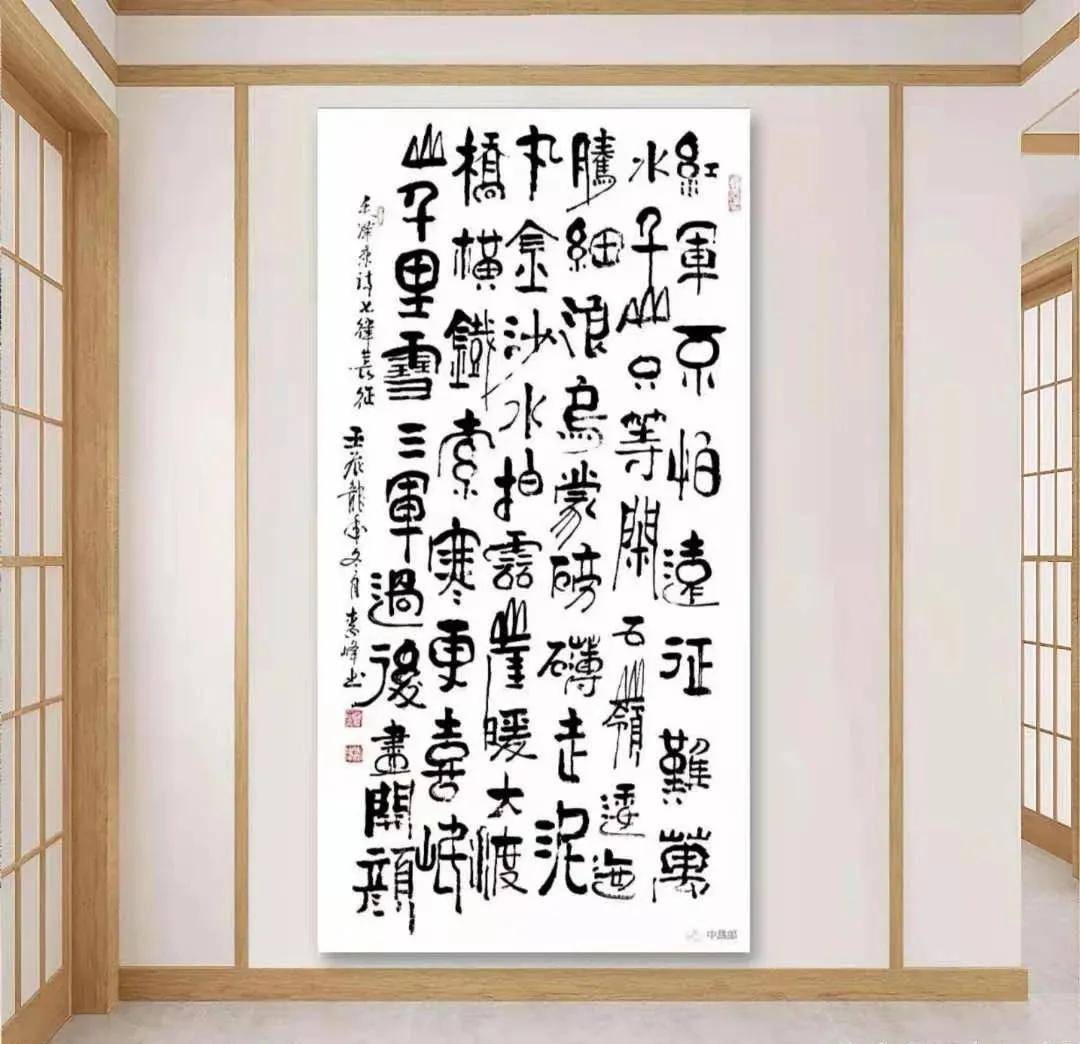 紅軍不怕遠征難萬
水千山只等閑五嶺逶迤
騰細浪烏蒙磅礴走泥
丸金沙水拍雲崖暖大渡
橋橫鐵索寒更喜岷
山千里雪三軍過後盡開顏
毛澤東詩七律長征 壬辰龍年冬月 峰书